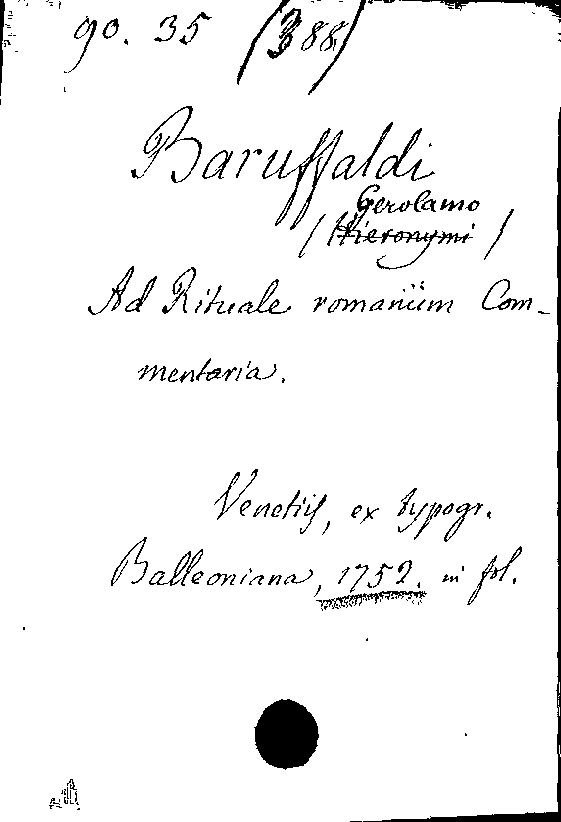 90. 35 (388)
Baruffaldi
Gerolamo
(Hieronymi)
Ad Rituale romanum Com-
mentaria.
Venetiis, ex typogr.
Balleoniana, 1752. in fol.